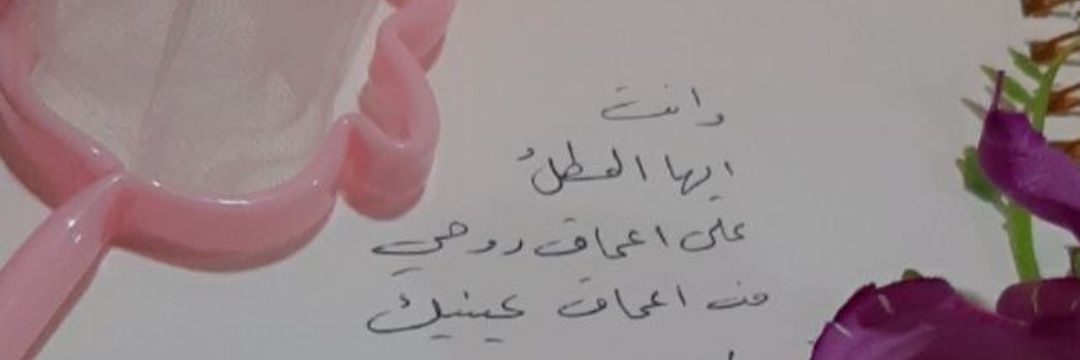 وانت
ايها المطلُ
على اعماق روحي
من اعماق عينيك